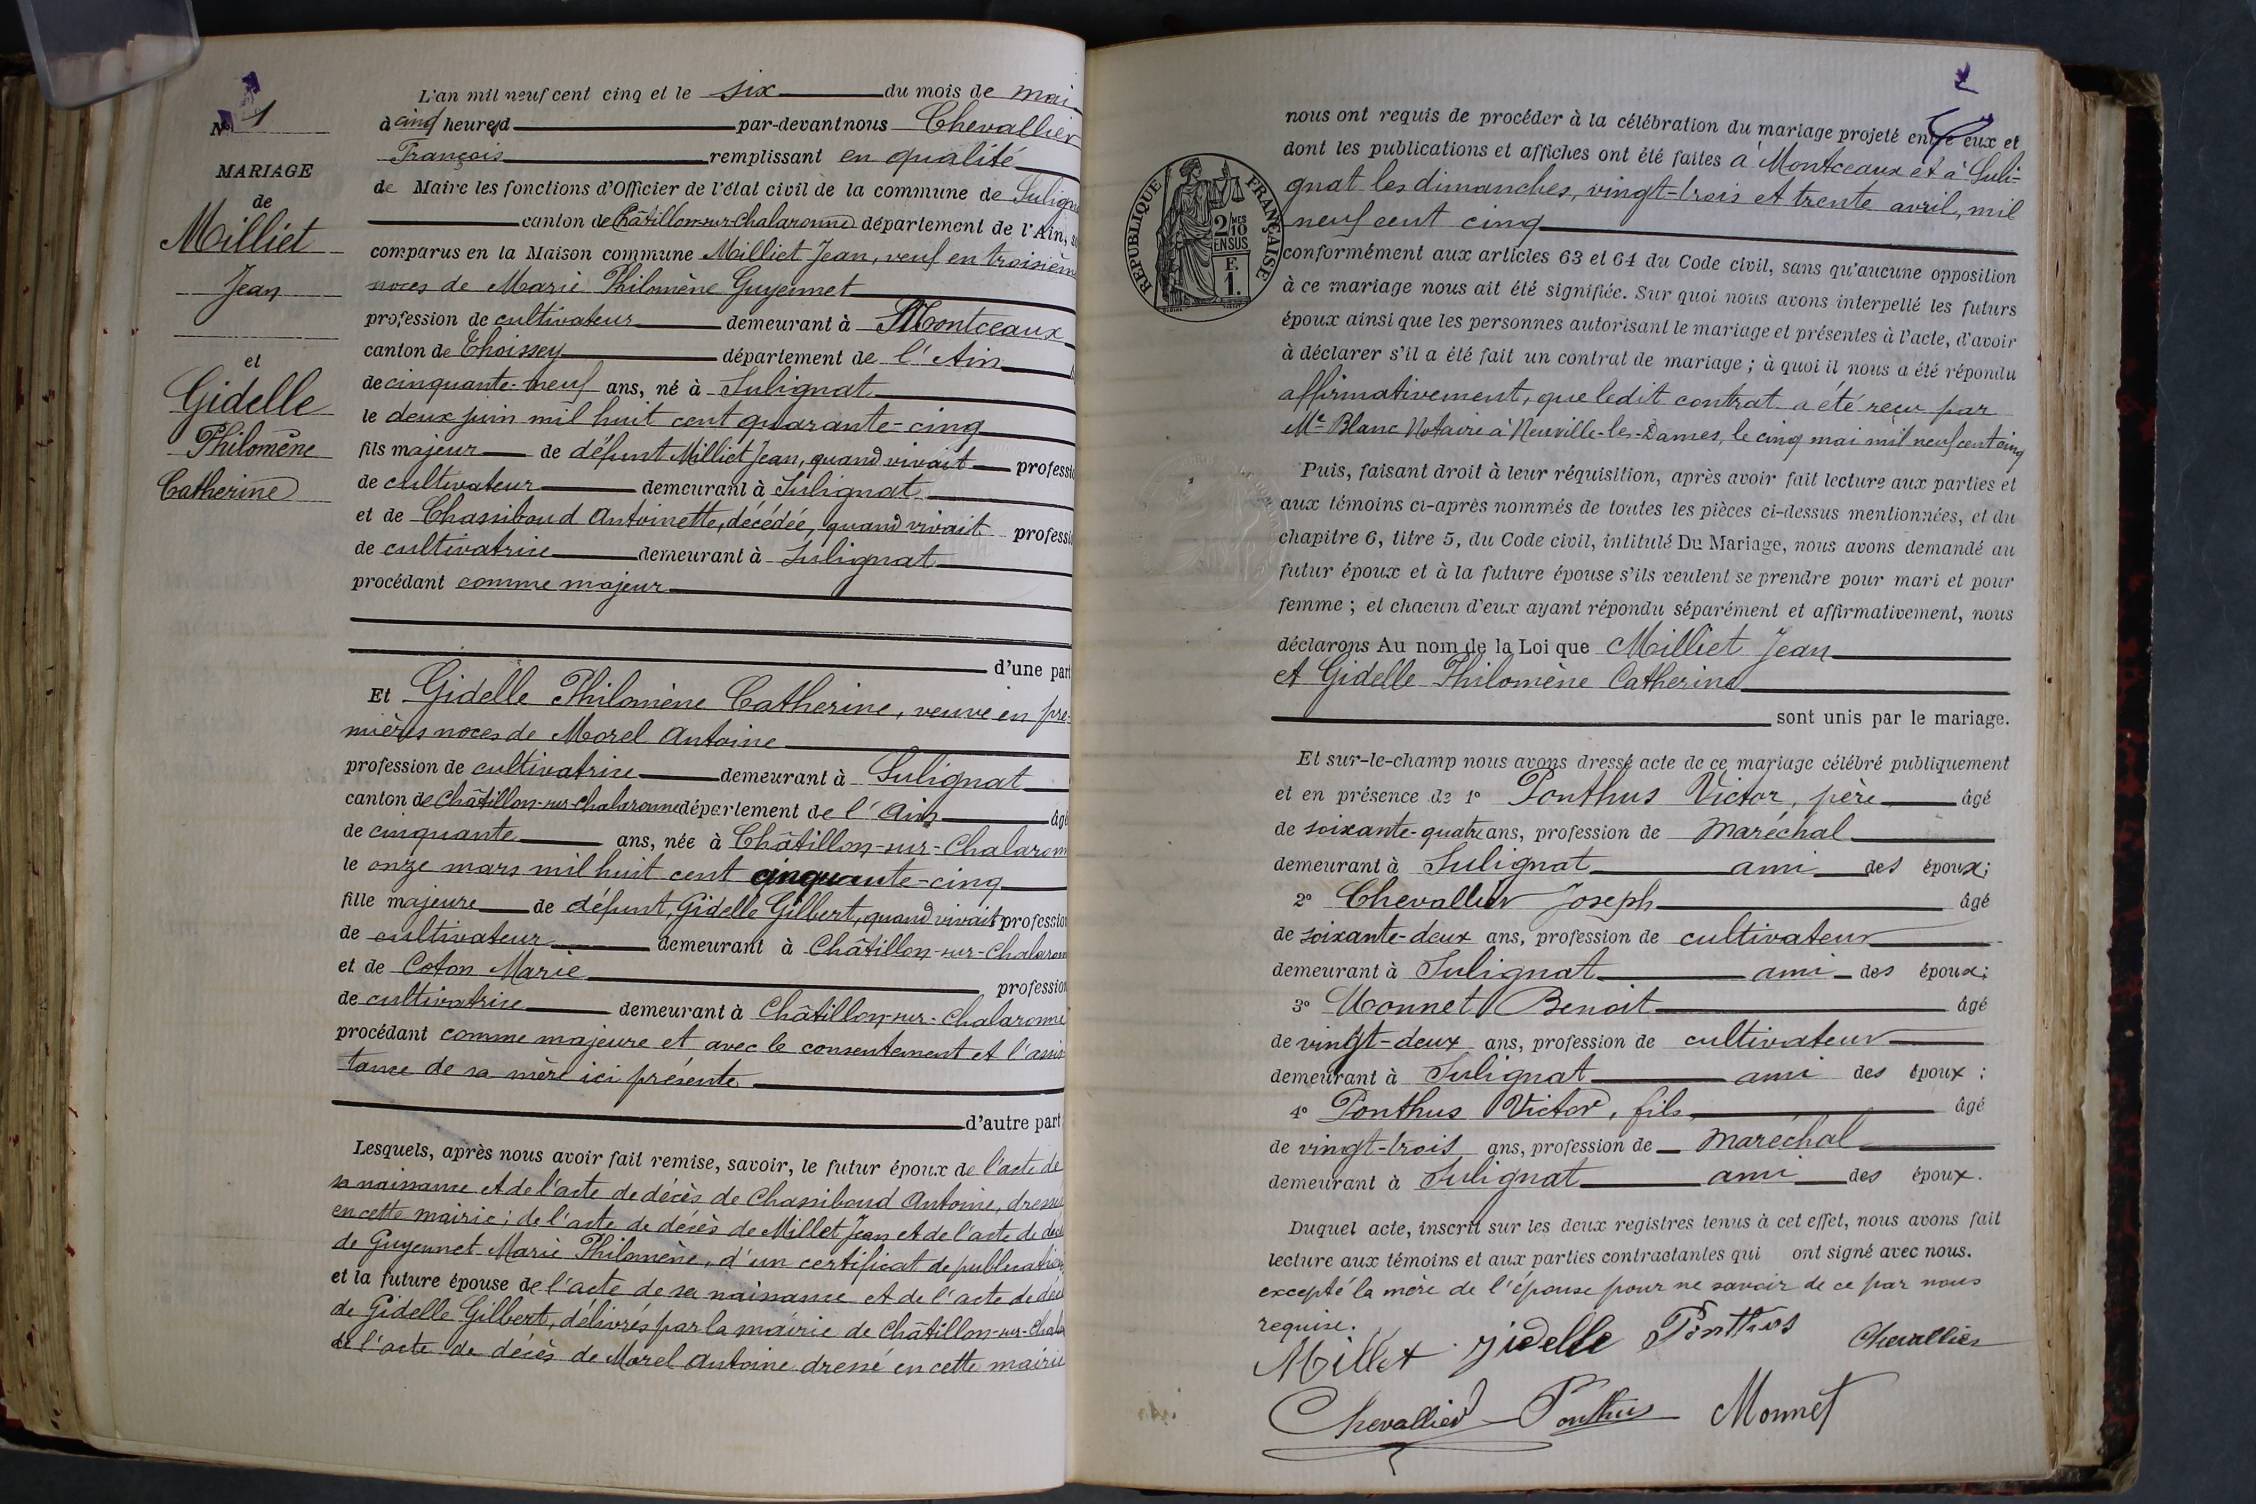 N° 1
MARIAGE
de
Milliet
Jean
et
Gidelle
Philomène
Catherine
L'an mil neuf cent cinq et le six du mois de mai
à cinq heures d par-devant nous Chevallier
François remplissant en qualité
de Maire les fonctions d'Officier de l'état civil de la commune de Sulignat
canton de Châtillon-sur-Chalaronne département de l'Ain, s
comparus en la Maison commune Milliet Jean, veuf en troisième
noces de Marie Philomène Guyennet
profession de cultivateur demeurant à Montceaux
canton de Thoissey département de l'Ain
de cinquante-neuf ans, né à Sulignat
le deux juin mil huit cent quarante-cinq
fils majeur de défunt Milliet Jean, quand vivait professi
de cultivateur demeurant à Sulignat
et de Chassiboud Antoinette, décédée, quand vivait professi
de cultivatrice demeurant à Sulignat
procédant comme majeur
d'une part
Et Gidelle Philomène Catherine, veuve en pre-
mières noces de Morel Antoine
profession de cultivatrice demeurant à Sulignat
canton de Châtillon-sur-Chalaronne département de l'Ain âgé
de cinquante ans, née à Châtillon-sur-Chalaronn
le onze mars mil huit cent cinquante-cinq
fille majeure de défunt, Gidelle Gilbert, quand vivait profession
de cultivateur demeurant à Châtillon-sur-Chalaronn
et de Coton Marie profession
de cultivatrice demeurant à Châtillon-sur-Chalaronne
procédant comme majeure et avec le consentement et l'assis-
tance de sa mère ici présente
d'autre part
Lesquels, après nous avoir fait remise, savoir, le futur époux de l'acte de
sa naissance et de l'acte de décès de Chassiboud Antoine, dressés
en cette mairie; de l'acte de décès de Millet Jean et de l'acte de décè
de Guyennet Marie Philomène, d'un certificat de publication
et la future épouse de l'acte de sa naissance et de l'acte de décè
de Gidelle Gilbert, délivrés par la mairie de Châtillon-sur-Chala
de l'acte de décès de Morel Antoine dressé en cette mairie
2
nous ont requis de procéder à la célébration du mariage projeté entre eux et
dont les publications et affiches ont été faites à Montceaux et à Suli-
gnat les dimanches, vingt-trois et trente avril, mil
neuf cent cinq
RÉPUBLIQUE FRANÇAISE
2/10MES
EN SUS
F.
1.
conformément aux articles 63 et 64 du Code civil, sans qu'aucune opposition
à ce mariage nous ait été signifiée. Sur quoi nous avons interpellé les futurs
époux ainsi que les personnes autorisant le mariage et présentes à l'acte, d'avoir
à déclarer s'il a été fait un contrat de mariage ; à quoi il nous a été répondu
affirmativement, que ledit contrat a été reçu par
Me Blanc Notaire à Neuville-les-Dames, le cinq mai mil neuf cent cinq
Puis, faisant droit à leur réquisition, après avoir fait lecture aux parties et
aux témoins ci-après nommés de toutes les pièces ci-dessus mentionnées, et du
chapitre 6, titre 5, du Code civil, intitulé Du Mariage, nous avons demandé au
futur époux et à la future épouse s'ils veulent se prendre pour mari et pour
femme ; et chacun d'eux ayant répondu séparément et affirmativement, nous
déclarons Au nom de la Loi que Milliet Jean
et Gidelle Philomène Catherine
sont unis par le mariage.
Et sur-le-champ nous avons dressé acte de ce mariage célébré publiquement
et en présence de 1° Ponthus Victor, père âgé
de soixante-quatre ans, profession de maréchal
demeurant à Sulignat ami des époux;
2° Chevallier Joseph âgé
de soixante-deux ans, profession de cultivateur
demeurant à Sulignat ami des époux;
3° Monnet Benoit âgé
de vingt-deux ans, profession de cultivateur
demeurant à Sulignat ami des époux ;
4° Ponthus Victor, fils, âgé
de vingt-trois ans, profession de maréchal
demeurant à Sulignat ami des époux.
Duquel acte, inscrit sur les deux registres tenus à cet effet, nous avons fait
lecture aux témoins et aux parties contractantes qui ont signé avec nous.
excepté la mère de l'épouse pour ne savoir de ce par nous
requise.
Millet gidelle Ponthus Chevallier
Chevallier Ponthus Monnet